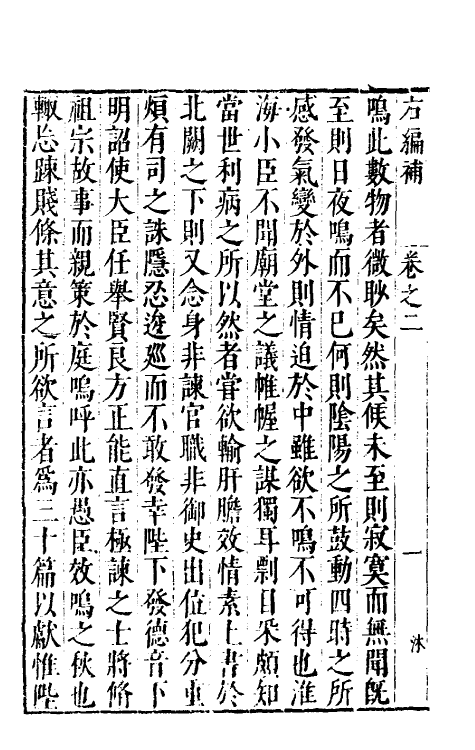 右編補 卷之二 一 沐
鳴此數物者微眇矣然其候未至則寂寞而無聞旣
至則日夜鳴而不已何則陰陽之所鼓動四時之所
感發氣變於外則情迫於中雖欲不鳴不可得也淮
海小臣不聞廟堂之議帷幄之謀獨耳剽目采頗知
當世利病之所以然者嘗欲輸肝膽效情素上書於
北闕之下則又念身非諫官職非御史出位犯分重
煩有司之誅隱忍逡廵而不敢發幸陛下發德音下
明詔使大臣任舉賢良方正能直言極諫之士將脩
祖宗故事而親策於庭嗚呼此亦愚臣效鳴之秋也
輙忘踈賤條其意之所欲言者爲三十篇以獻惟陛